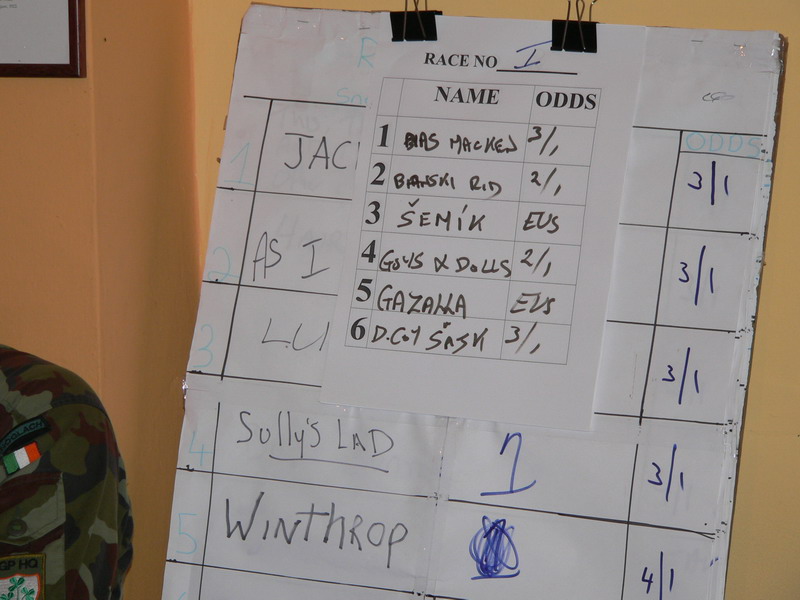 RACE NO I
NAME ODDS
1 BIAS MACKEN 3/1
2 BIANSKI RID 2/1
3 ŠEMÍK EVS
4 GUYS & DOLLS 2/1
5 GAZALLA EVS
6 D.COY ŠÁSK 3/1
ODDS
1 JAC 3/1
2 AS I 3/1
3 LU 3/1
4 Sully's LAD 1 3/1
5 WINTHROP 4/1
GP HQ